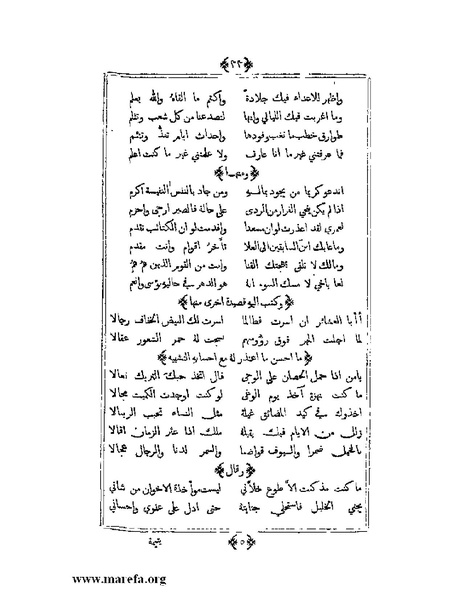 ﴿ ٣٣ ﴾
واظهر للاعداء فيك جلادة واكتم ما القاه والله يعلم
وما اغربت فيك الليالي وانها لتصدعنا من كل شعب وتثلم
طوارق خطب ما تغب وفودها واحداث ايام تغذ وتتئم
فما عرفتني غير ما انا عارف ولا علمتني غير ما كنت اعلم
﴿ ومنها ﴾
اتدعو كريما من يجود بماله ومن جاد بالنفس النفيسة اكرم
اذا لم يكن ينجي الفرار من الردى على حالة فالصبر ارجى واحزم
لعمري لقد اعذرت لو ان مسعدا واقدمت لو ان الكتائب تقدم
وما عابك ابن السابقين الى العلا تأخر اقوام وانت مقدم
ومالك لا تلقى بمهجتك القنا وانت من القوم الذين هم هم
لعا يا اخي لا مسك السوء انه هو الدهر في حاليه بؤسى وانعم
﴿ وكتب اليه قصيدة اخرى منها ﴾
أأبا العشائر ان اسرت فطالما اسرت لك البيض الخفاف رجالا
لما اجلت المهر فوق رؤوسهم نسجت له حمر الشعور عقالا
﴿ ما احسن ما اعتذر له مع احسانه التشبيه ﴾
يا من اذا حمل الحصان على الوجى قال اتخذ حبك التريك نعالا
ما كنت نهزة آخذ يوم الوغى لو كنت اوجدت الكميت مجالا
اخذوك في كبد المضائق غيلة مثل النساء تحبب الرئبالا
زلل من الايام فيك يقيله ملك اذا عثر الزمان اقالا
بالخيل ضمرا والسيوف قواضبا والسمر لدنا والرجال عجالا
﴿ وقال ﴾
ما كنت مذ كنت الا طوع خلاني ليست مؤاخذة الاخوان من شاني
يجني الخليل فاستحلي جنايته حتى ادل على عفوي واحساني
﴿ ٥ ﴾ يتيمة
www.marefa.org